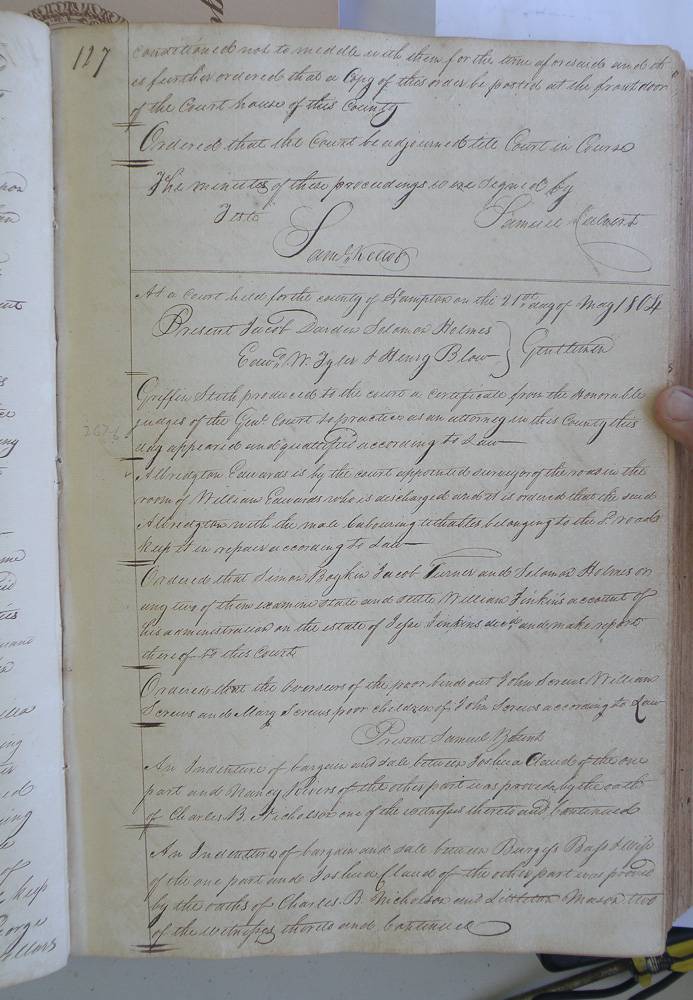 127
cautioned not to meddle with them for the time aforesaid and it
is further ordered that a Copy of this order be posted at the front door
of the Court house of this County
Ordered that the Court be adjourned till Court in Course
The minutes of these proceedings were signed by
Teste
Samuel Calvert
Saml. Kello
At a Court held for the county of Sampton on the 21st day of May 1804
Present Jacob Darden Solomon Holmes
Edwd. W. Tyler & Henry Blow
Gentlemen
Griffin Stith produced to the court a Certificate from the Honorable
judges of the Genl. Court to practice as an attorney in this County this
day appeared and qualified according to Law
Albridgton Edwards is by the court appointed surveyor of the road in the
room of William Edwards who is discharged and it is ordered that the said
Albridgton with the male labouring tithables belonging to the sd. road
keep it in repair according to Law
Ordered that Simon Boykin Jacob Turner and Solomon Holmes or
any two of them examine state and settle William Jinkins's account of
his administration on the estate of Jesse Jinkins decd. and make report
thereof to this Court
Ordered that the Overseers of the poor bind out John Screws William
Screws and Mary Screws poor children of John Screws according to Law
Present Samuel Blunt
An Indenture of bargain and sale between Joshua Claud of the one
part and Nancy Rivers of the other part was proved by the oath
of Charles B. Nicholson one of the witnesses thereto and Continued
An Indenture of bargain and sale between Burgess Bass & wife
of the one part and Joshua Claud of the other part was proved
by the oaths of Charles B. Nicholson and Littleton Mason two
of the witnesses thereto and Continued